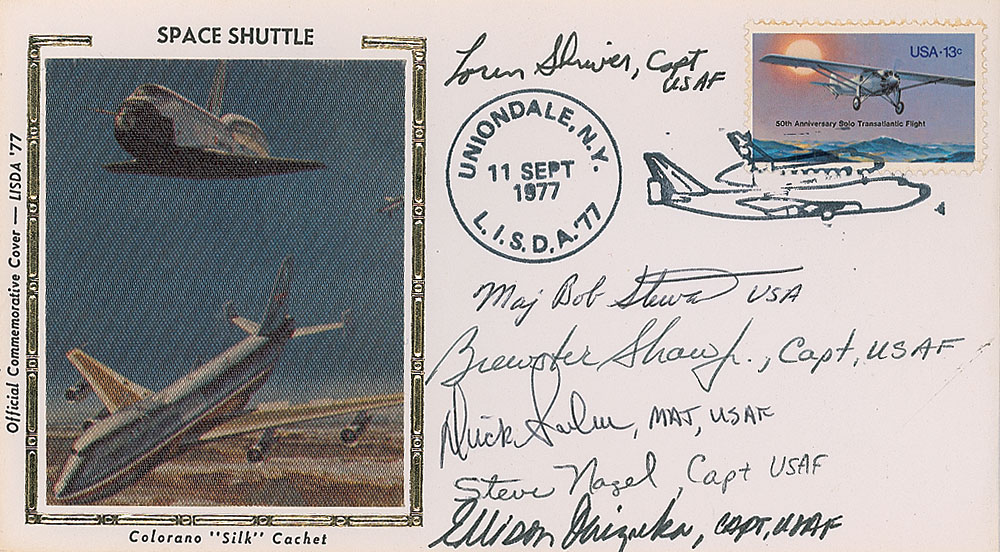 SPACE SHUTTLE
Official Commemorative Cover — LISDA '77
Colorano "Silk" Cachet
Loren Shriver, Capt
USAF
UNIONDALE, N.Y.
11 SEPT
1977
L.I.S.D.A. '77
USA·13c
50th Anniversary Solo Transatlantic Flight
Maj Bob Stewart USA
Brewster Shaw Jr., Capt, USAF
Dick Scobee, MAJ, USAF
Steve Nagel, Capt USAF
Ellison Onizuka, CAPT, USAF